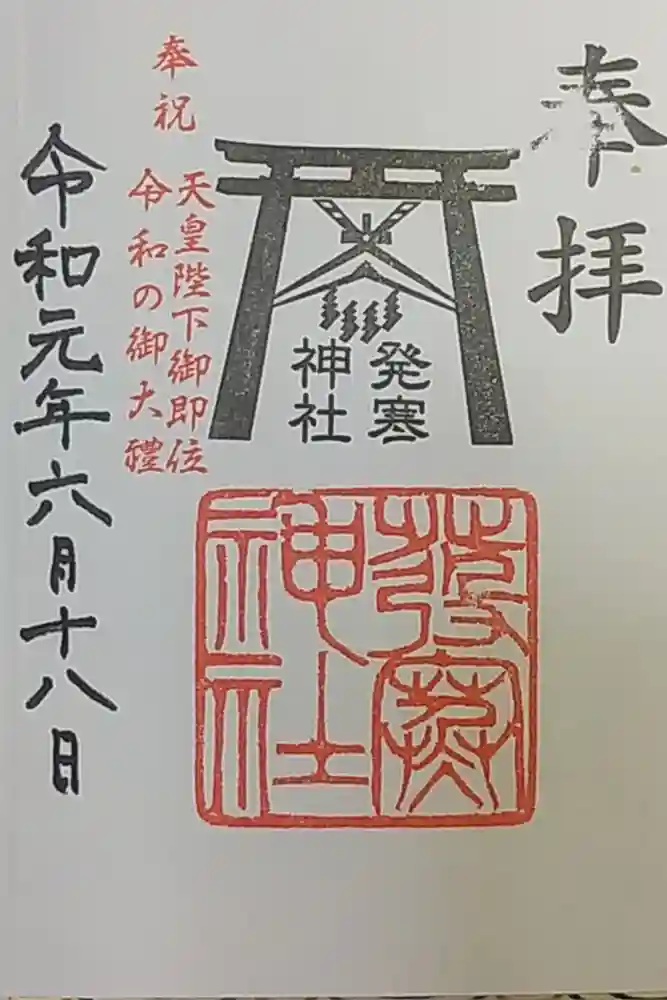 奉拝
発寒
神社
發寒
神社
奉祝
天皇陛下御即位
令和の御大禮
令和元年六月十八日